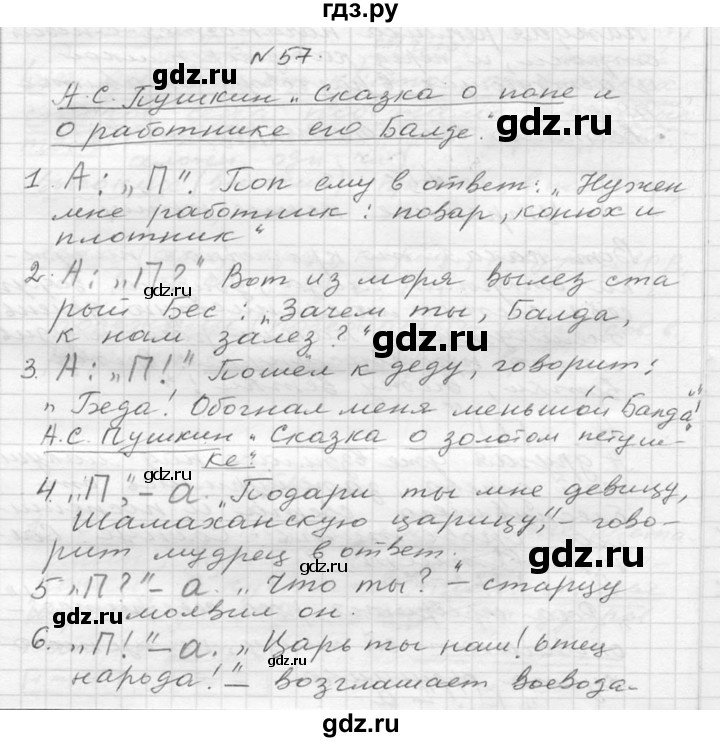 гдз.ру
N 57.
А.С. Пушкин „Сказка о попе и
о работнике его Балде."
1. А: „П". Поп ему в ответ: „Нужен
мне работник: повар, конюх и
плотник"
2. А: „П?" Вот из моря вылез ста
рый Бес: „Зачем ты, Балда,
к нам залез?"
3. А: „П!" Пошёл к деду, говорит:
„Беда! Обогнал меня меньшой Балда!"
А.С. Пушкин „Сказка о золотом петуш-
ке".
4. „П," – а. „Подари ты мне девицу,
Шамаханскую царицу," – гово-
рит мудрец в ответ.
5 „П?" – а. „Что ты?" – старцу
молвил он.
6. „П!" – а. „Царь ты наш! отец
народа!" – возглашает воевода-
gdz.ru
gdz.ru
gdz.ru
gdz.ru
gdz.ru
gdz.ru
gdz.ru
gdz.ru
gdz.ru
gdz.ru